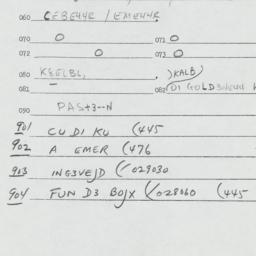 060 CEBE44R / EME44R
070 O 071 O
072 O 073 O
080 KEELBL, , )KALB)
081 082
090 PAS+3--N
901 CU DI KU (445
902 A EMER (476
903 ING3VEJD (/029030
904 FUN D3 BOJX (/028060 (445